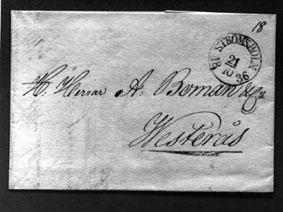 18
STRÖMSHOLM
21
10 36
H: Herrar A. Boman & C:o
Westerås